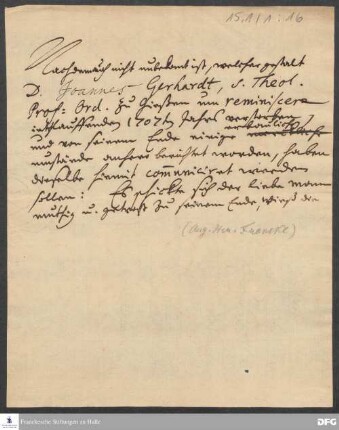 15.1/1:16
Nachdem auch nicht unbekant ist, welcher gestalt
D. Joannes Gerhardt, S. Theol.
Prof: Ord. zu Giessen um reminiscere
jetzlauffenden 1707ten Jahres verstorben,
und von seinem Ende einige
umstände anhero berichtet worden, haben
dieselbe hiemit communicirt werden
sollen: Es schickte sich der liebe mann
muthig u. getrost zu seinem Ende, die
(Aug. Herm. Francke)
Franckesche Stiftungen zu Halle
DFG